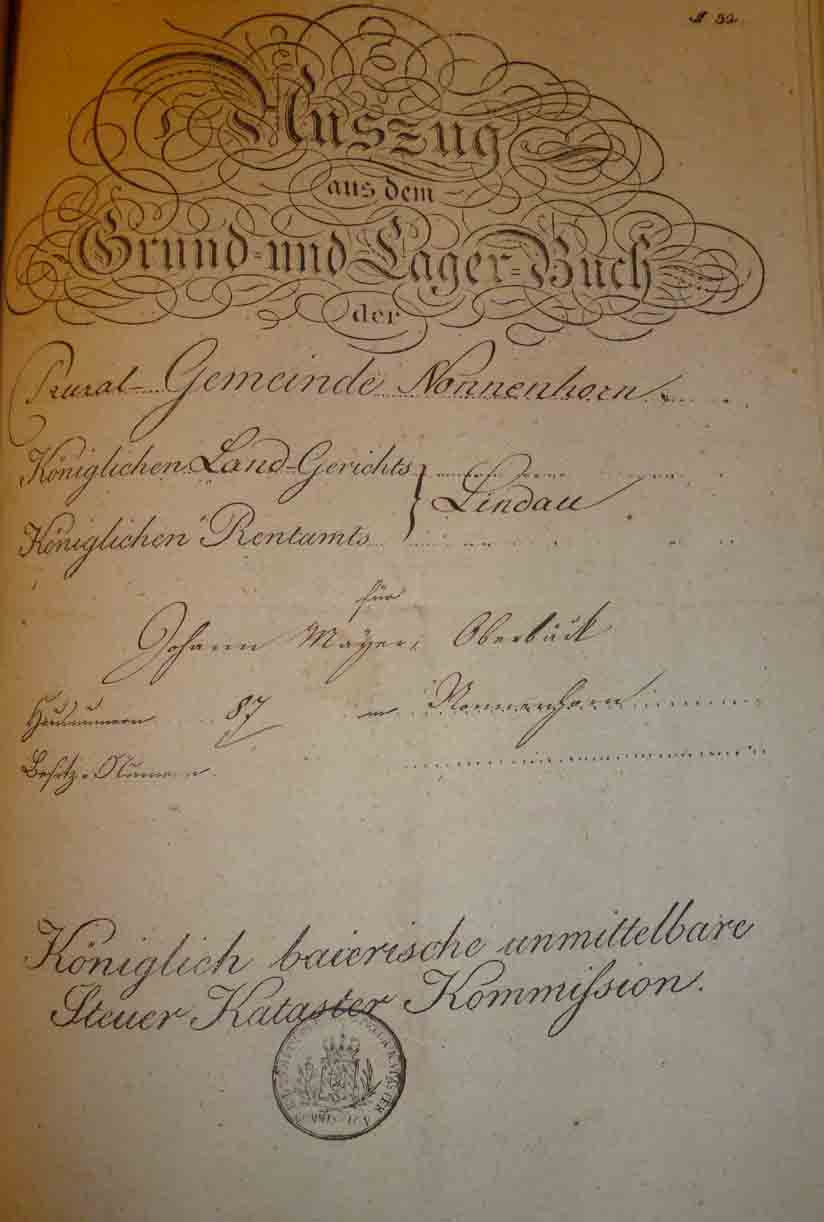 Auszug
aus dem
Grund- und Lager-Buch
der
Rural-Gemeinde Nonnenhorn
Königlichen Land-Gerichts
Lindau
Königlichen Rentamts
für
Johann Mayer, Oberbäck
Hausnummern 87 in Nonnenhorn
Besitz-Namen
Königlich baierische unmittelbare
Steuer Kataster Kommißion.